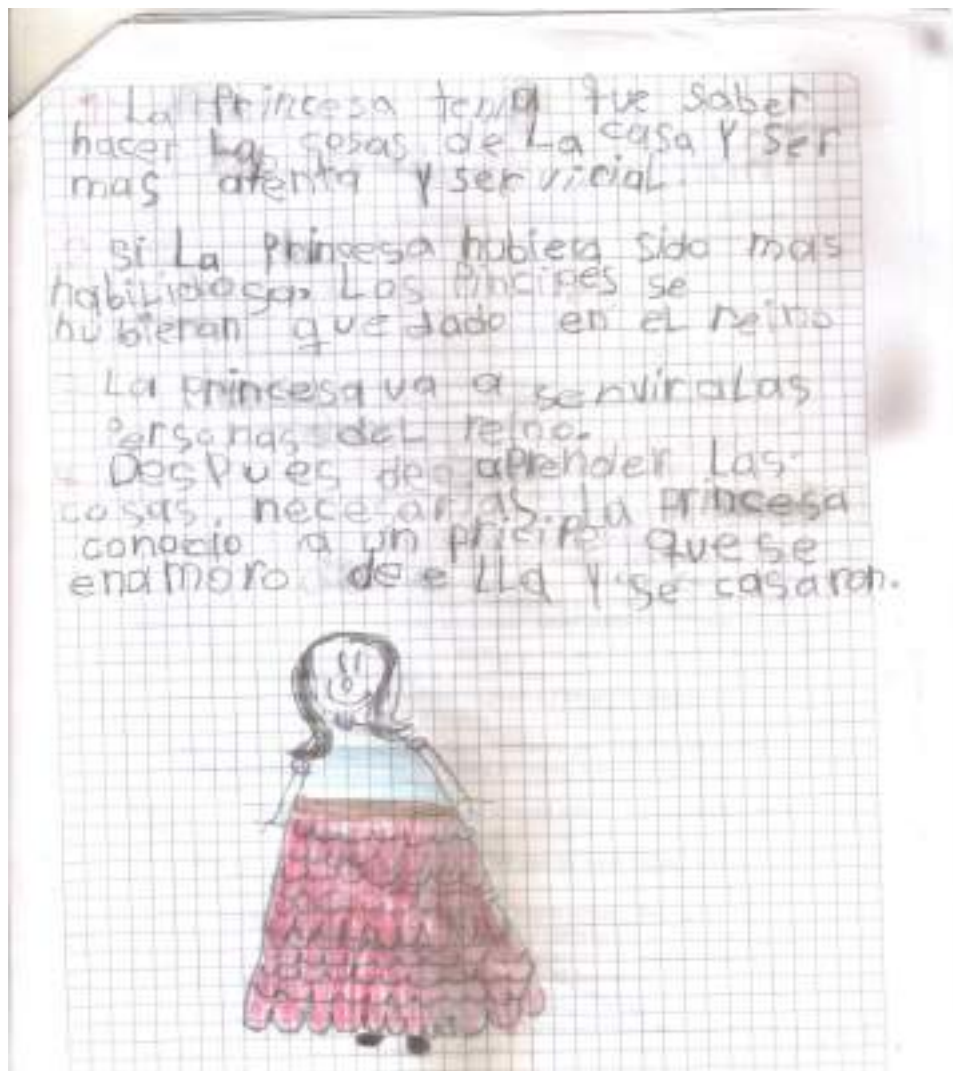 La Princesa tenia que saber
hacer La cosas de La casa Y ser
mas atenta Y ser vicial.
si La Princesa hubiera sido mas
habilidosa, Los Pincipes se
hubieran que dado en el reino
La princesa va a servir a Las
Personas del reino.
Des Pues de aprender Las
cosas. necesarias La princesa
conocio a un pricipe que se
enamoro de e LLa Y se casaron.